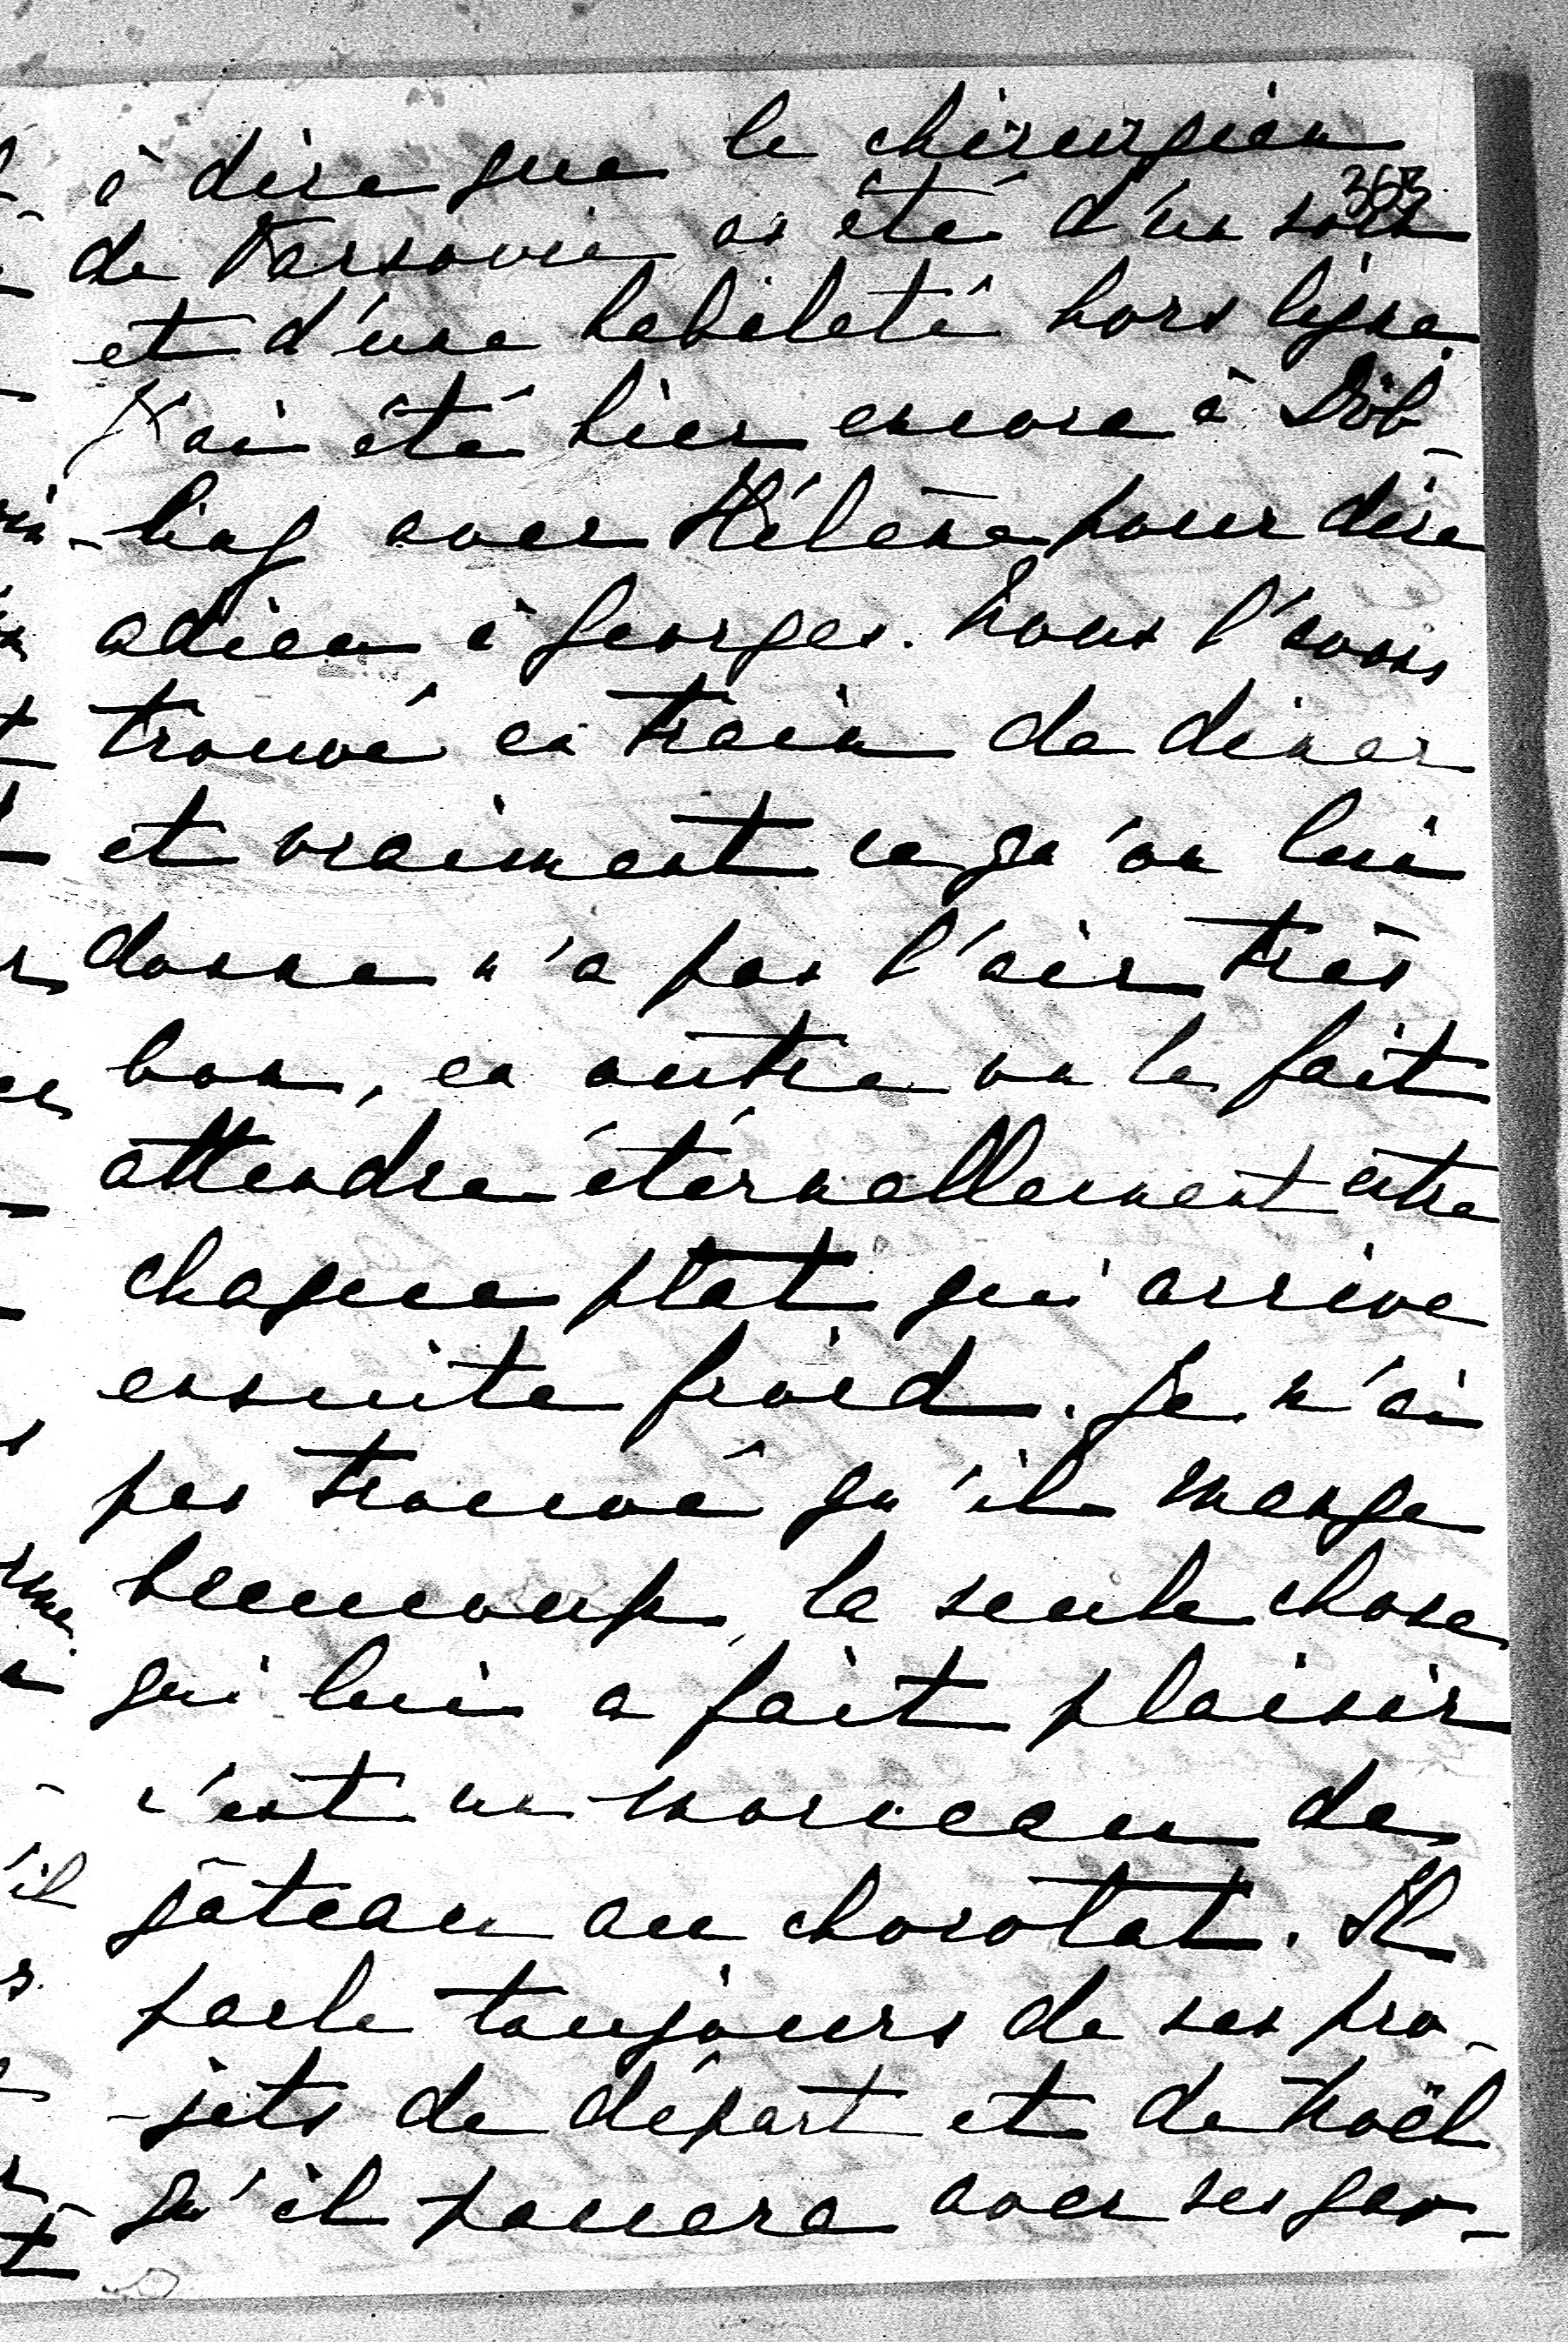 à dire que le chirurgien
363
de Varsovie a été d'un soin
et d'une habileté hors ligne.
J'ai été hier encore à Döb-
-ling avec Hélène pour dire
adieu à Georges. Nous l'avons
trouvé en train de diner
et vraiment ce qu'on lui
donne n'a pas l'air très
bon, en outre on le fait
attendre éternellement entre
chaque plat qui arrive
ensuite froid. Je n'ai
pas trouvé qu'il mange
beaucoup, la seule chose
qui lui a fait plaisir
c'est un morceau de
gâteau au chocolat. Il
parle toujours de ses pro-
-jets de départ et de Noël
qu'il passera avec ses gar-